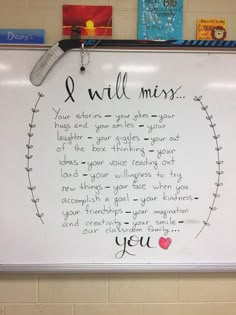 I will miss...
Your stories – your jokes – your
hugs and your smiles – your
laughter – your giggles – your out
of the box thinking – your
ideas – your voice reading out
loud – your willingness to try
new things – your face when you
accomplish a goal – your kindness –
your friendships – your imagination
and creativity – your smile –
our classroom family...
you